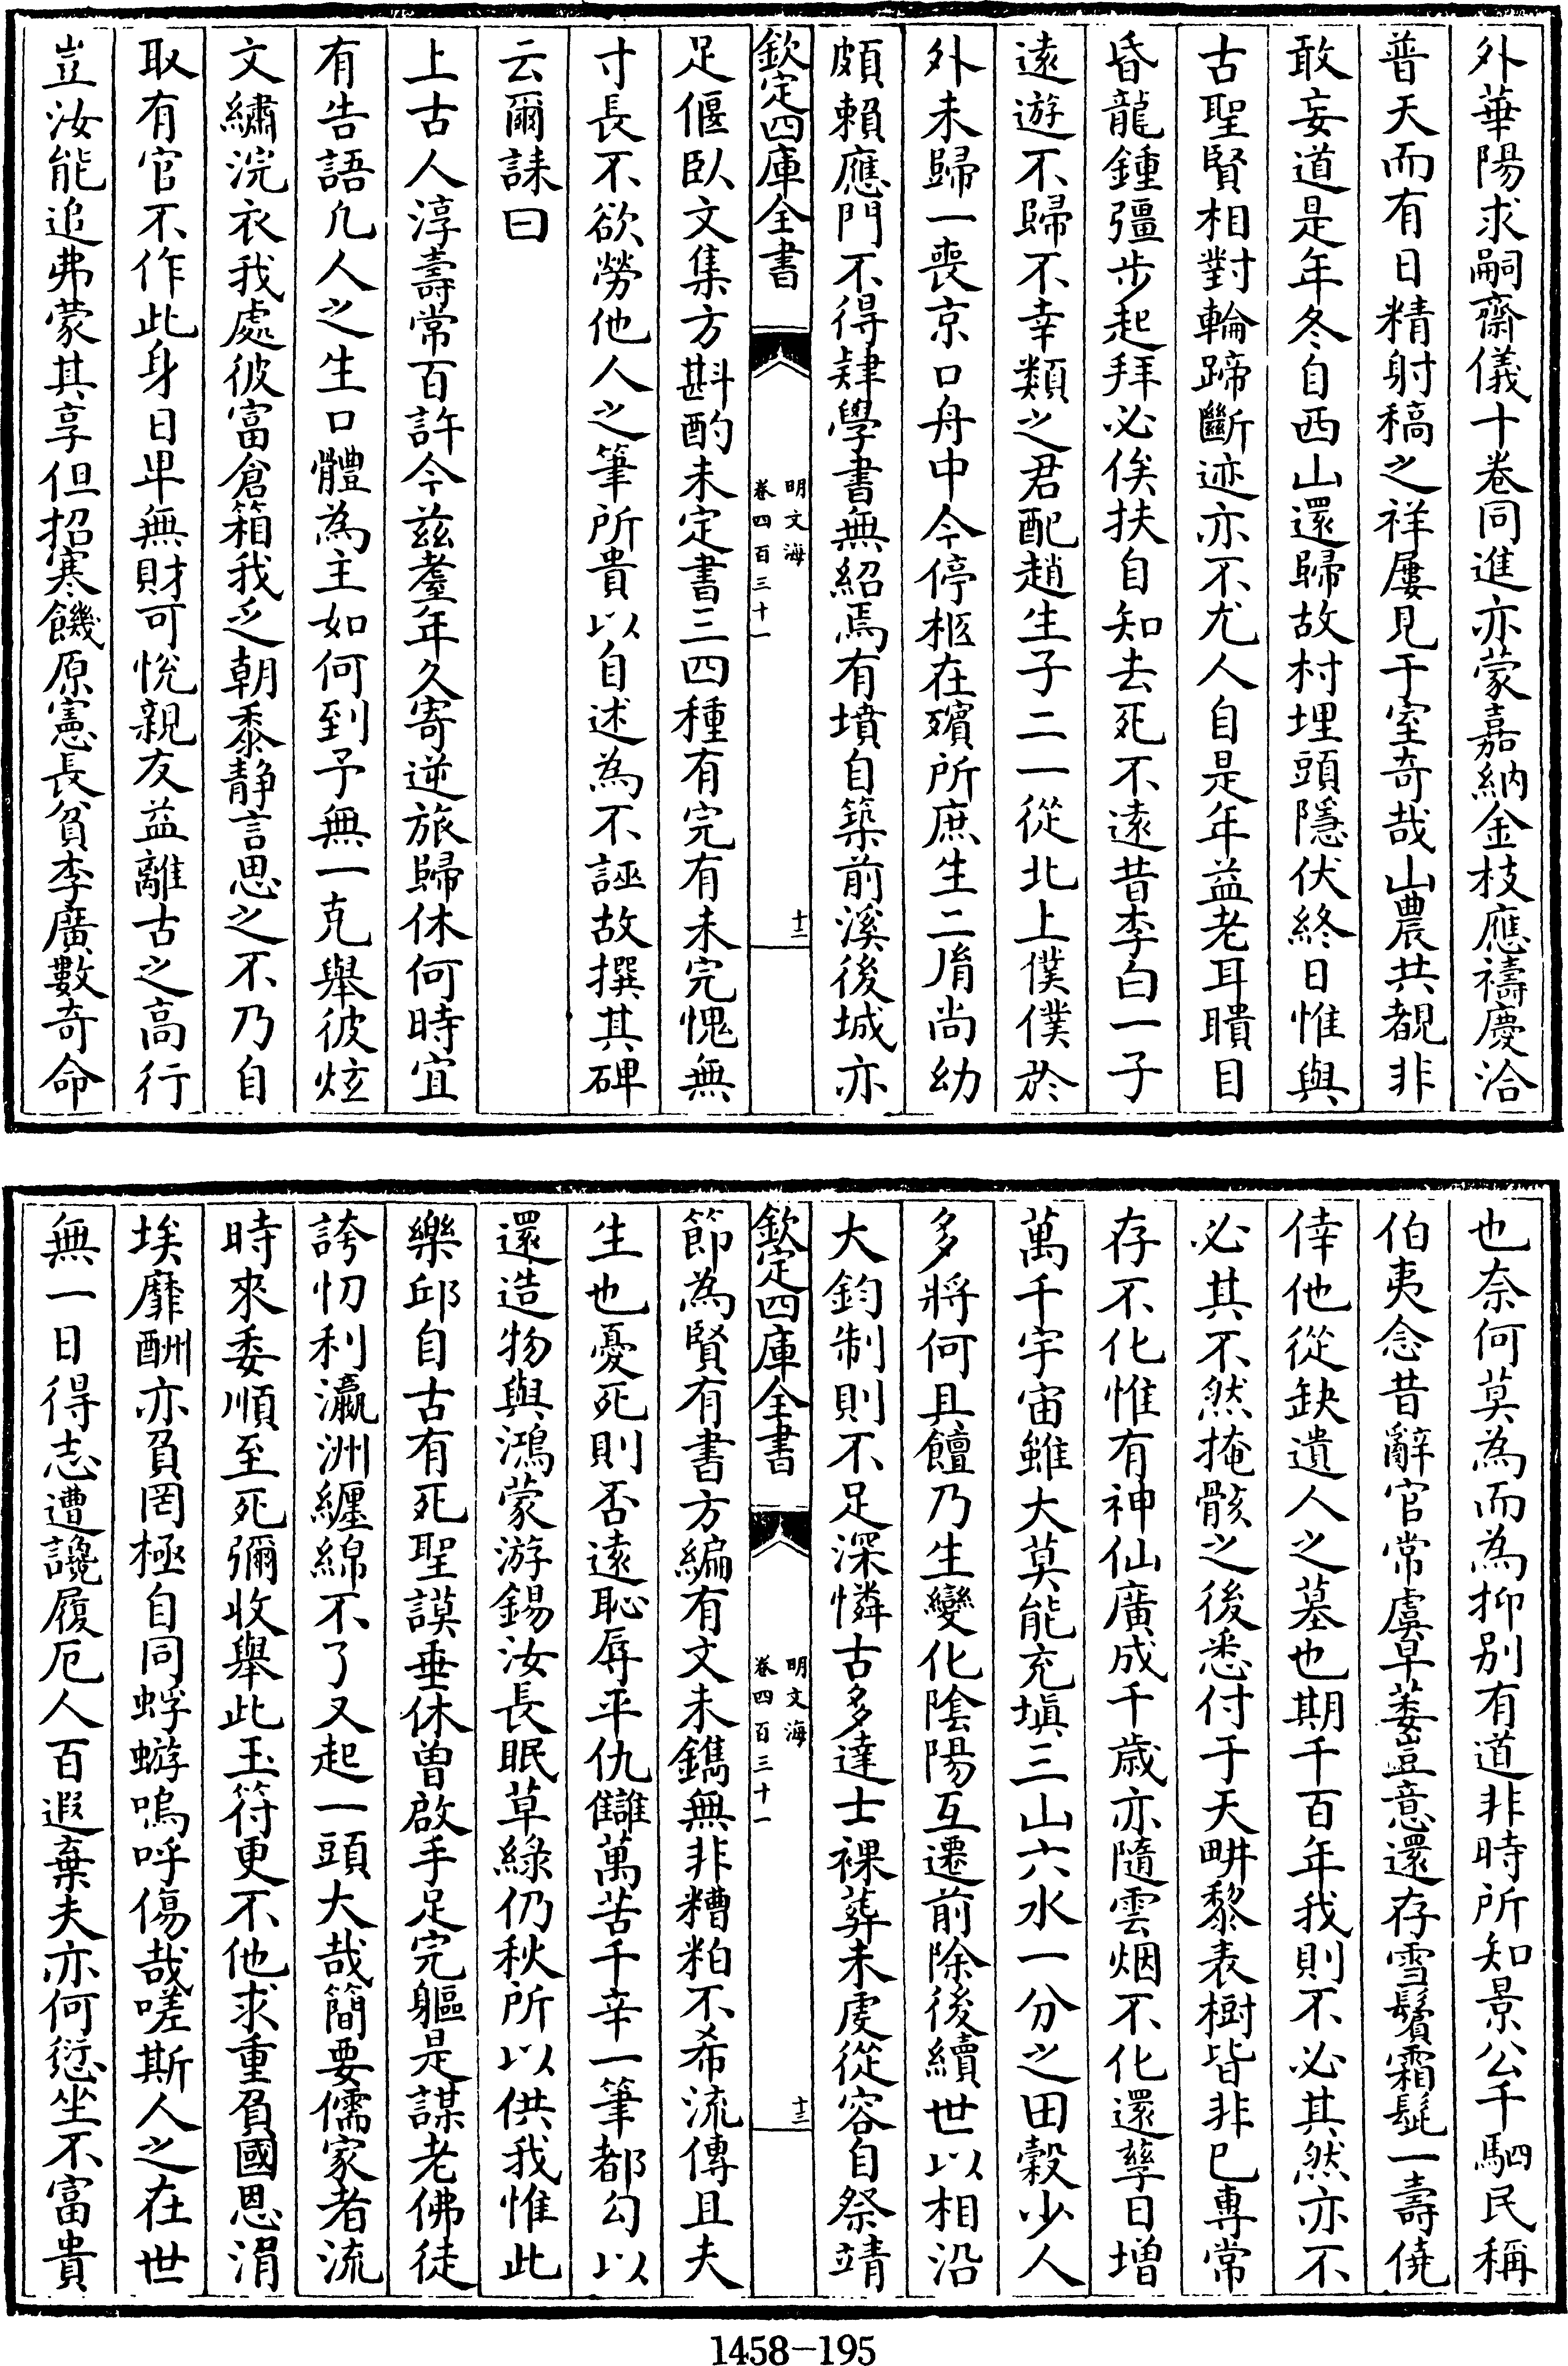 外華陽求嗣齋儀十卷同進亦蒙嘉納金枝應禱慶洽
普天而有日精射稿之祥屢見于室奇哉山農共覩非
敢妄道是年冬自西山還歸故村埋頭隱伏終日惟與
古聖賢相對輪蹄斷迹亦不尤人自是年益老耳聵目
昏龍鍾彊步起拜必俟扶自知去死不遠昔李白一子
遠遊不歸不幸類之君配趙生子二一從北上僕僕於
外未歸一喪京口舟中今停柩在殯所庶生二胤尚幼
頗賴應門不得肄學書無紹焉有墳自築前溪後城亦
欽定四庫全書
明文海
卷四百三十一
十二
足偃臥文集方斟酌未定書三四種有完有未完愧無
寸長不欲勞他人之筆所貴以自述為不誣故撰其碑
云爾誄曰
上古人淳壽常百許今兹耋年久寄逆旅歸休何時宜
有告語凡人之生口體為主如何到予無一克舉彼炫
文繡浣衣我處彼富倉箱我乏朝黍靜言思之不乃自
取有官不作此身日卑無財可悅親友益離古之高行
豈汝能追弗蒙其享但招寒饑原憲長貧李廣數奇命
也奈何莫為而為抑别有道非時所知景公千駟民稱
伯夷念昔辭官常虞早萎豈意還存雪鬢霜髭一壽僥
倖他從缺遺人之墓也期千百年我則不必其然亦不
必其不然掩骸之後悉付于天畊黎表樹皆非已專常
存不化惟有神仙廣成千歲亦隨雲烟不化還孳日增
萬千宇宙雖大莫能充塡三山六水一分之田穀少人
多將何且饘乃生變化陰陽互遷前除後續世以相沿
大鈞制則不足深憐古多達士裸葬未虔從容自祭靖
欽定四庫全書
明文海
卷四百三十一
十三
節為賢有書方編有文未鐫無非糟粕不希流傳且夫
生也憂死則否遠恥辱平仇讎萬苦千辛一筆都勾以
還造物與鴻蒙游錫汝長眠草綠仍秋所以供我惟此
樂邱自古有死聖謨垂休曾啟手足完軀是謀老佛徒
誇忉利瀛洲纏綿不了又起一頭大哉簡要儒家者流
時來委順至死彌收舉此玉符更不他求重負國恩涓
埃靡酬亦負罔極自同蜉蝣嗚呼傷哉嗟斯人之在世
無一日得志遭讒履厄人百遐棄夫亦何愆坐不富貴
1458-195